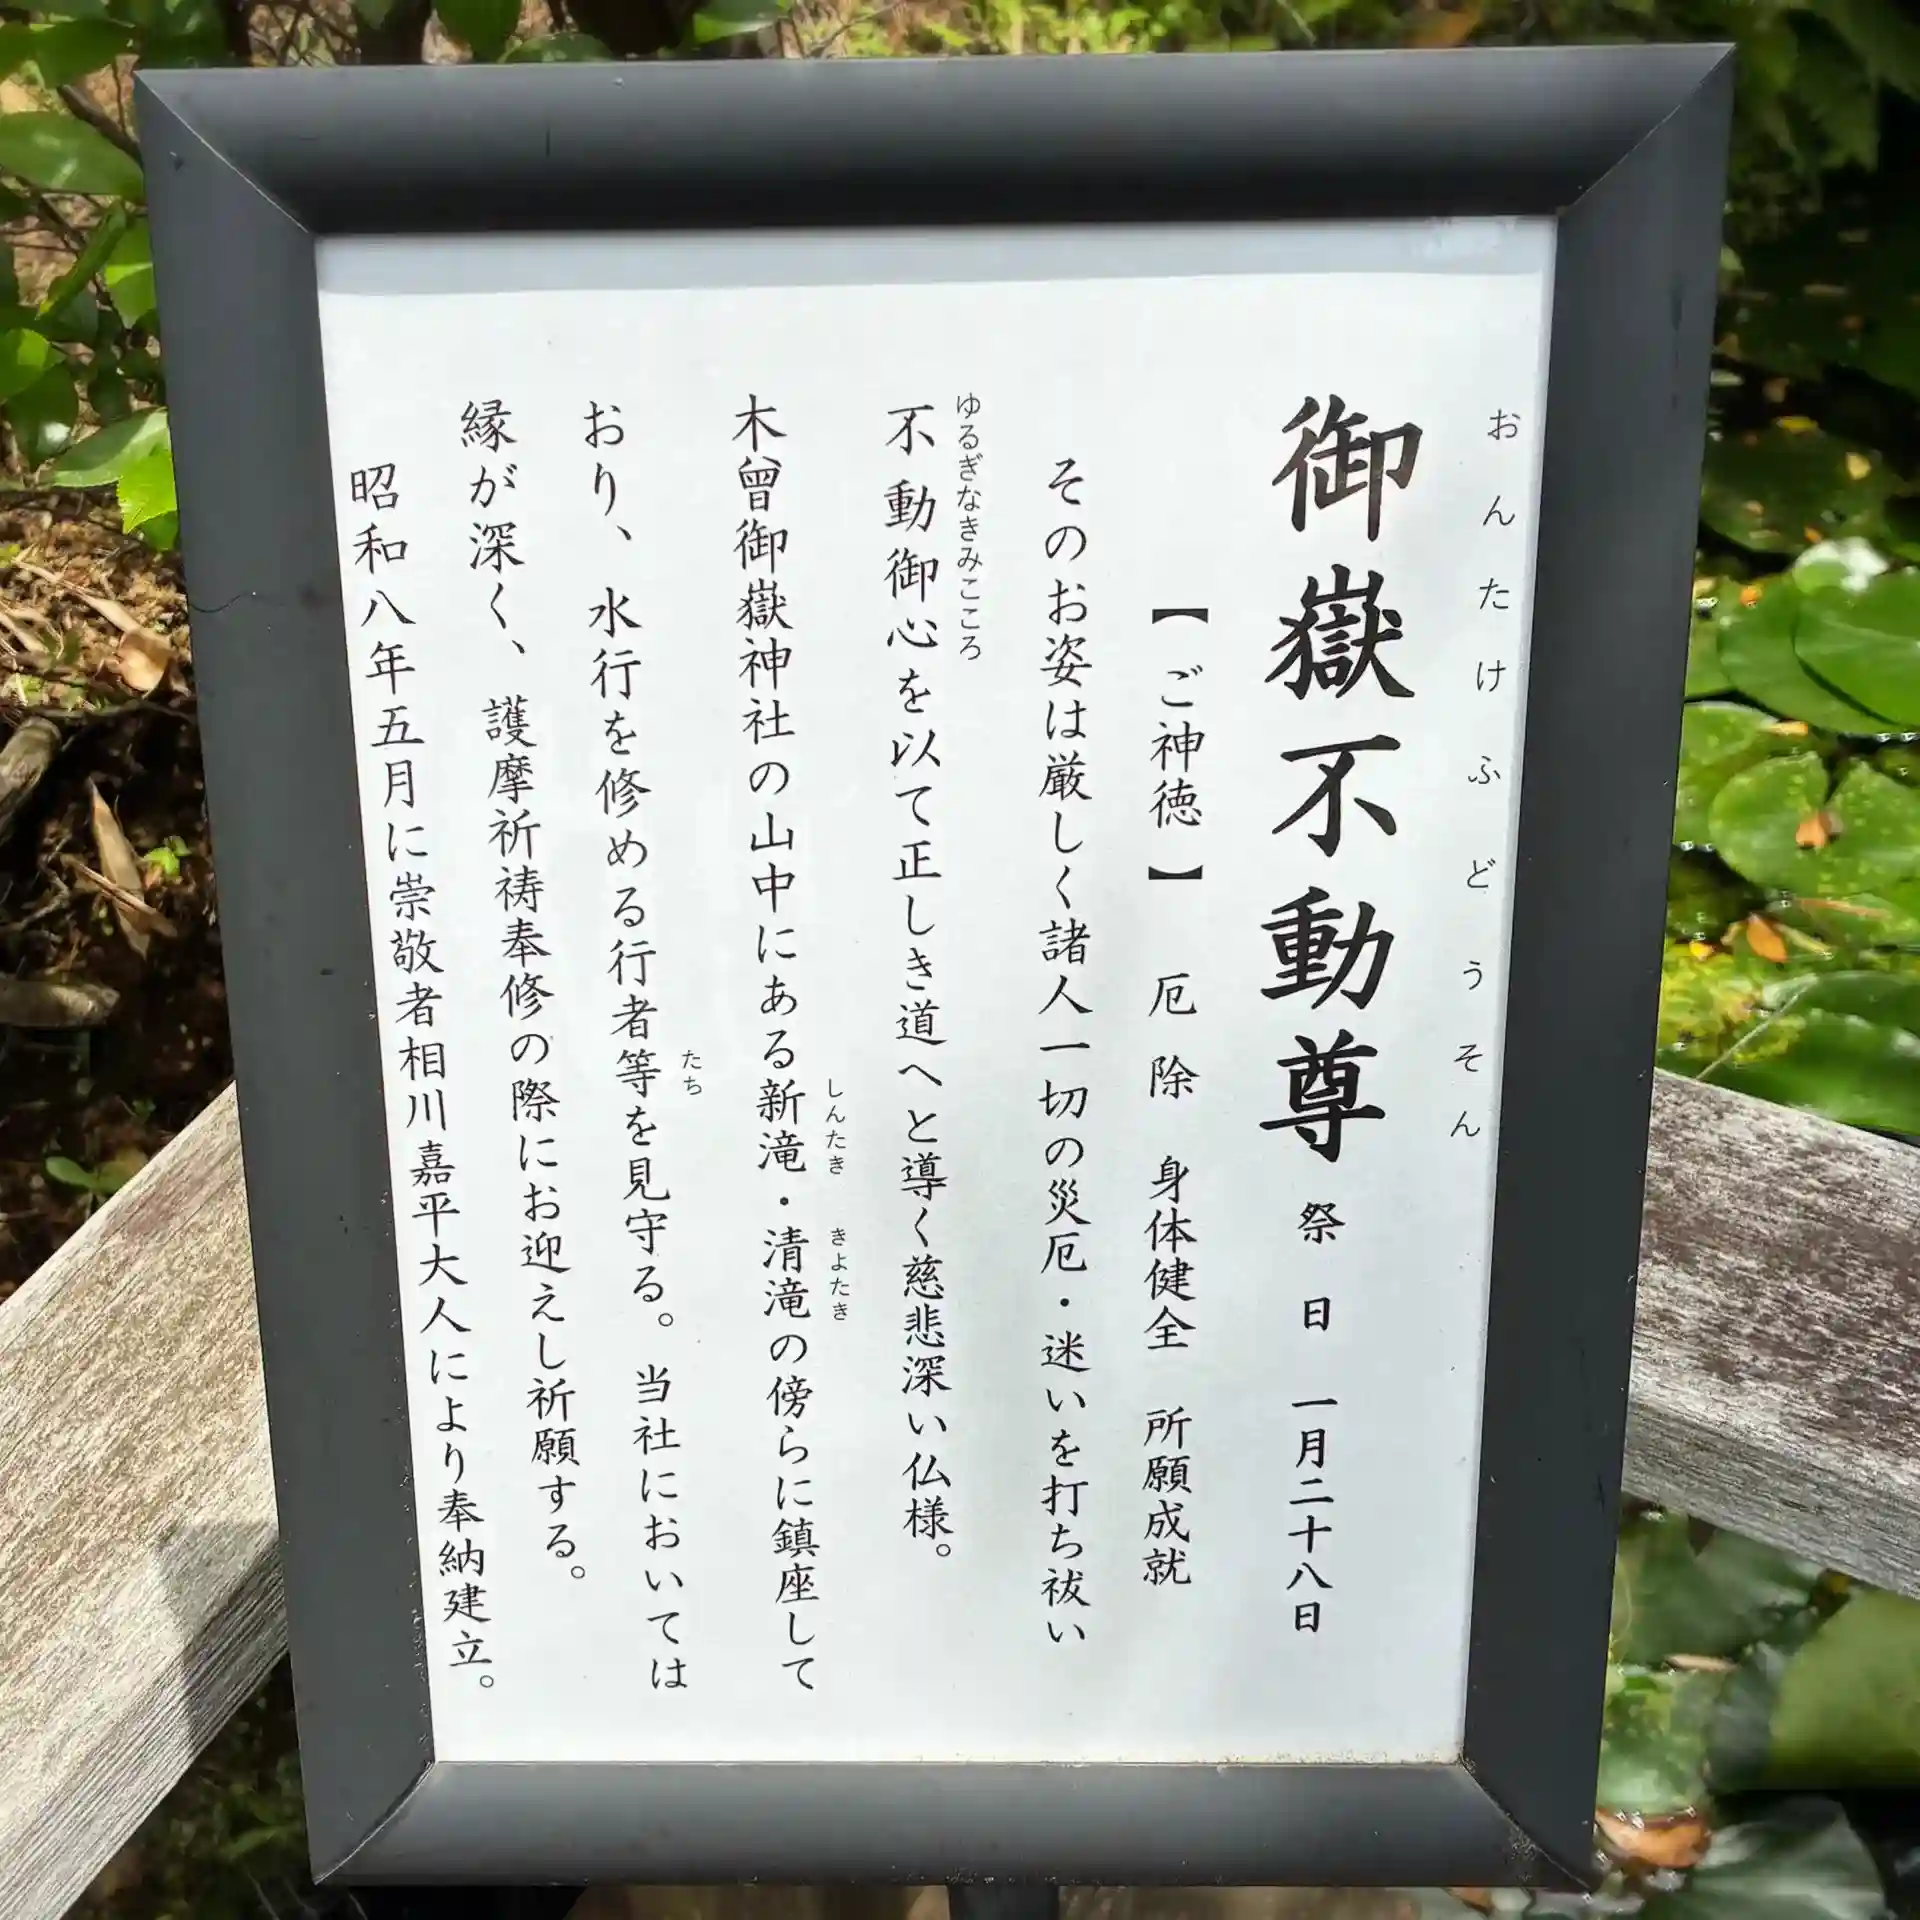 おんたけふどうそん
御嶽不動尊 祭日 一月二十八日
【ご神徳】 厄除 身体健全 所願成就
そのお姿は厳しく諸人一切の災厄・迷いを打ち祓い
ゆるぎなきみこころ
不動御心を以て正しき道へと導く慈悲深い仏様。
しんたき きよたき
木曾御嶽神社の山中にある新滝・清滝の傍らに鎮座して
たち
おり、水行を修める行者等を見守る。当社においては
縁が深く、護摩祈祷奉修の際にお迎えし祈願する。
昭和八年五月に崇敬者相川嘉平大人により奉納建立。